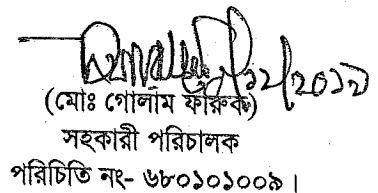 (মোঃ গোলাম ফারুক)
সহকারী পরিচালক
পরিচিতি নং- ৬৮০১০১০০৯।